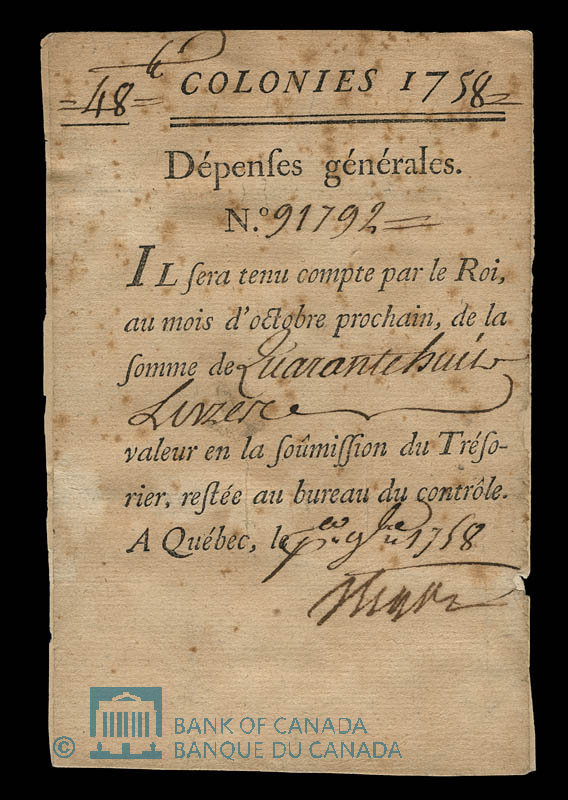 =48= COLONIES 1758
Dépenſes générales.
N.º 91792=
IL ſera tenu compte par le Roi,
au mois d'octobre prochain, de la
ſomme de Quarante huit
Livres
valeur en la ſoûmiſſion du Tréſo-
rier, reſtée au bureau du contrôle.
A Québec, le 1758
© BANK OF CANADA
BANQUE DU CANADA